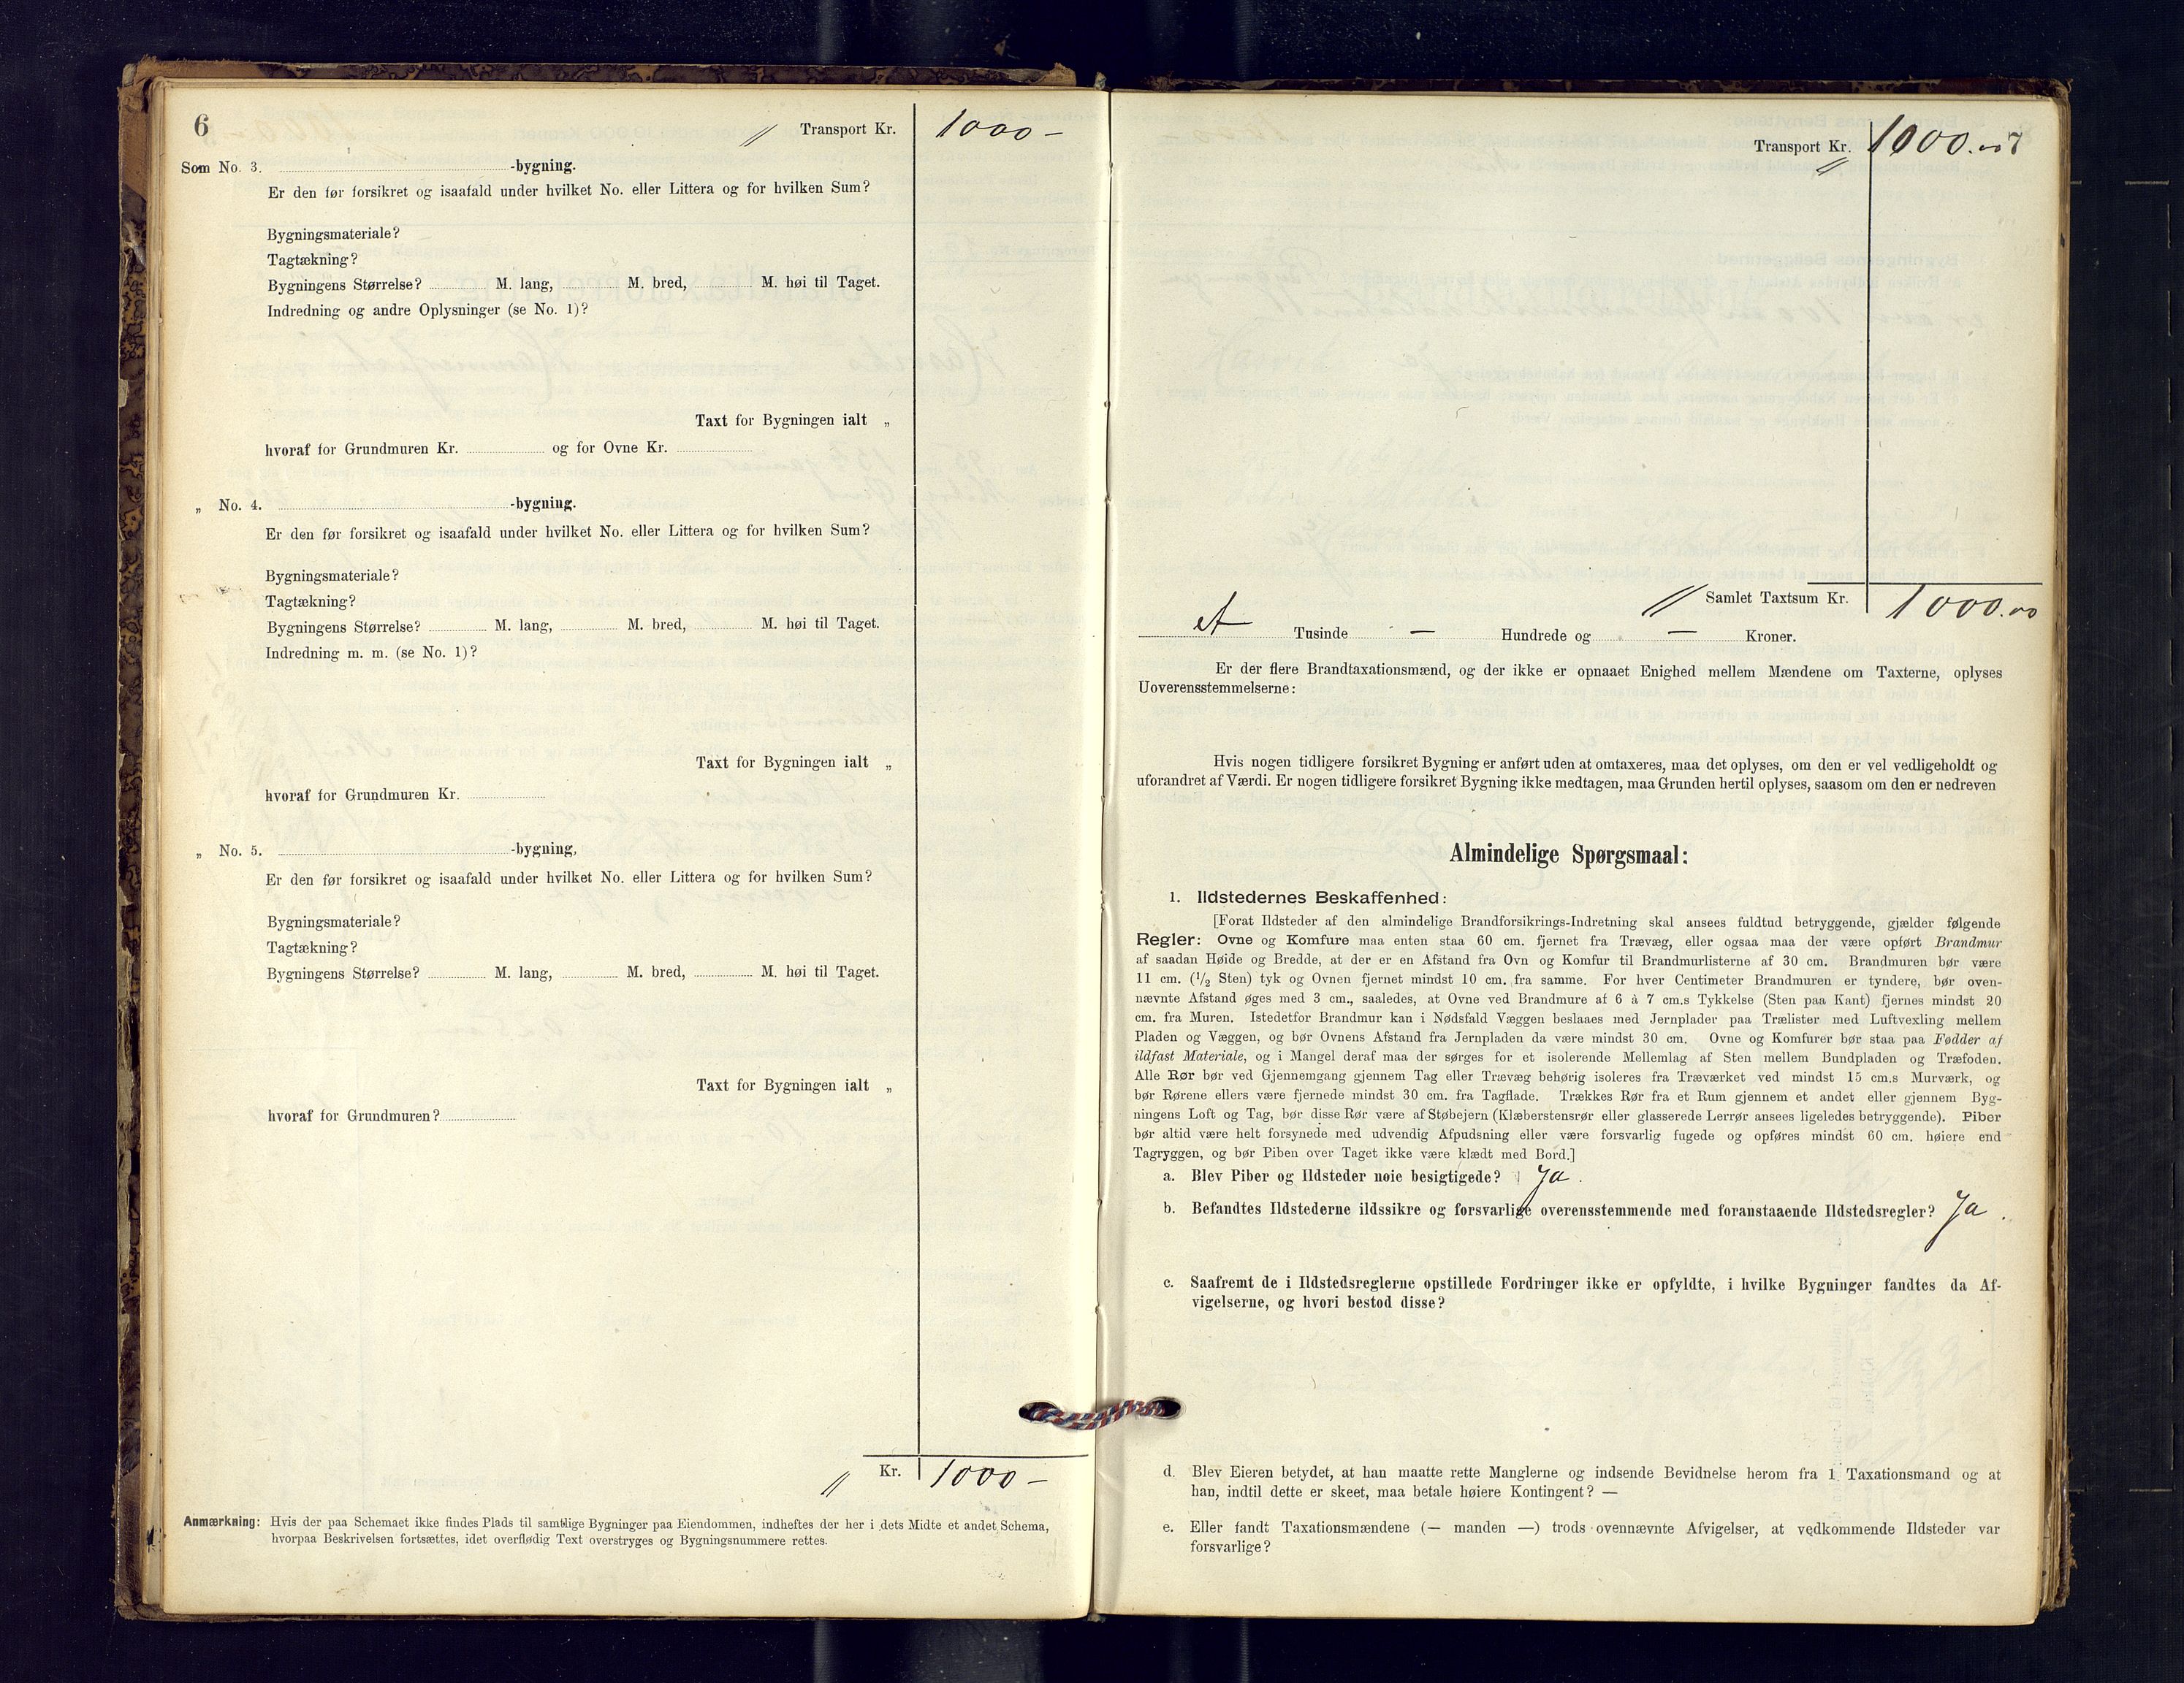 6
Transport Kr. 1000 –
Som No. 3. -bygning.
Er den før forsikret og isaafald under hvilket No. eller Littera og for hvilken Sum?
Bygningsmateriale?
Tagtækning?
Bygningens Størrelse? M. lang, M. bred, M. høi til Taget.
Indredning og andre Oplysninger (se No. 1)?
Taxt for Bygningen ialt „
hvoraf for Grundmuren Kr. og for Ovne Kr.
„ No. 4. -bygning.
Er den før forsikret og isaafald under hvilket No. eller Littera og for hvilken Sum?
Bygningsmateriale?
Tagtækning?
Bygningens Størrelse? M. lang, M. bred, M. høi til Taget.
Indredning m. m. (se No. 1)?
Taxt for Bygningen ialt „
hvoraf for Grundmuren Kr.
„ No. 5. -bygning,
Er den før forsikret og isaafald under hvilket No. eller Littera og for hvilken Sum?
Bygningsmateriale?
Tagtækning?
Bygningens Størrelse? M. lang, M. bred, M. høi til Taget.
Taxt for Bygningen ialt „
hvoraf for Grundmuren?
Kr. 1000 –
Anmærkning: Hvis der paa Schemaet ikke findes Plads til samtlige Bygninger paa Eiendommen, indheftes der her i dets Midte et andet Schema,
hvorpaa Beskrivelsen fortsættes, idet overflødig Text overstryges og Bygningsnummere rettes.
7
Transport Kr. 1000.00
Samlet Taxtsum Kr. 1000.00
et Tusinde – Hundrede og – Kroner.
Er der flere Brandtaxationsmænd, og der ikke er opnaaet Enighed mellem Mændene om Taxterne, oplyses
Uoverensstemmelserne:
Hvis nogen tidligere forsikret Bygning er anført uden at omtaxeres, maa det oplyses, om den er vel vedligeholdt og
uforandret af Værdi. Er nogen tidligere forsikret Bygning ikke medtagen, maa Grunden hertil oplyses, saasom om den er nedreven
Almindelige Spørgsmaal:
1. Ildstedernes Beskaffenhed:
[Forat Ildsteder af den almindelige Brandforsikrings-Indretning skal ansees fuldtud betryggende, gjælder følgende
Regler: Ovne og Komfure maa enten staa 60 cm. fjernet fra Trævæg, eller ogsaa maa der være opført Brandmur
af saadan Høide og Bredde, at der er en Afstand fra Ovn og Komfur til Brandmurlisterne af 30 cm. Brandmuren bør være
11 cm. (1/2 Sten) tyk og Ovnen fjernet mindst 10 cm. fra samme. For hver Centimeter Brandmuren er tyndere, bør oven-
nævnte Afstand øges med 3 cm., saaledes, at Ovne ved Brandmure af 6 à 7 cm.s Tykkelse (Sten paa Kant) fjernes mindst 20
cm. fra Muren. Istedetfor Brandmur kan i Nødsfald Væggen beslaaes med Jernplader paa Trælister med Luftvexling mellem
Pladen og Væggen, og bør Ovnens Afstand fra Jernpladen da være mindst 30 cm. Ovne og Komfurer bør staa paa Fødder af
ildfast Materiale, og i Mangel deraf maa der sørges for et isolerende Mellemlag af Sten mellem Bundpladen og Træfoden.
Alle Rør bør ved Gjennemgang gjennem Tag eller Trævæg behørig isoleres fra Træværket ved mindst 15 cm.s Murværk, og
bør Rørene ellers være fjernede mindst 30 cm. fra Tagflade. Trækkes Rør fra et Rum gjennem et andet eller gjennem Byg-
ningens Loft og Tag, bør disse Rør være af Støbejern (Klæberstensrør eller glasserede Lerrør ansees ligeledes betryggende). Piber
bør altid være helt forsynede med udvendig Afpudsning eller være forsvarlig fugede og opføres mindst 60 cm. høiere end
Tagryggen, og bør Piben over Taget ikke være klædt med Bord.]
a. Blev Piber og Ildsteder nøie besigtigede? Ja.
b. Befandtes Ildstederne ildssikre og forsvarlige overensstemmende med foranstaaende Ildstedsregler? Ja.
c. Saafremt de i Ildstedsreglerne opstillede Fordringer ikke er opfyldte, i hvilke Bygninger fandtes da Af-
vigelserne, og hvori bestod disse?
d. Blev Eieren betydet, at han maatte rette Manglerne og indsende Bevidnelse herom fra 1 Taxationsmand og at
han, indtil dette er skeet, maa betale høiere Kontingent? —
e. Eller fandt Taxationsmændene (— manden —) trods ovennævnte Afvigelser, at vedkommende Ildsteder var
forsvarlige?